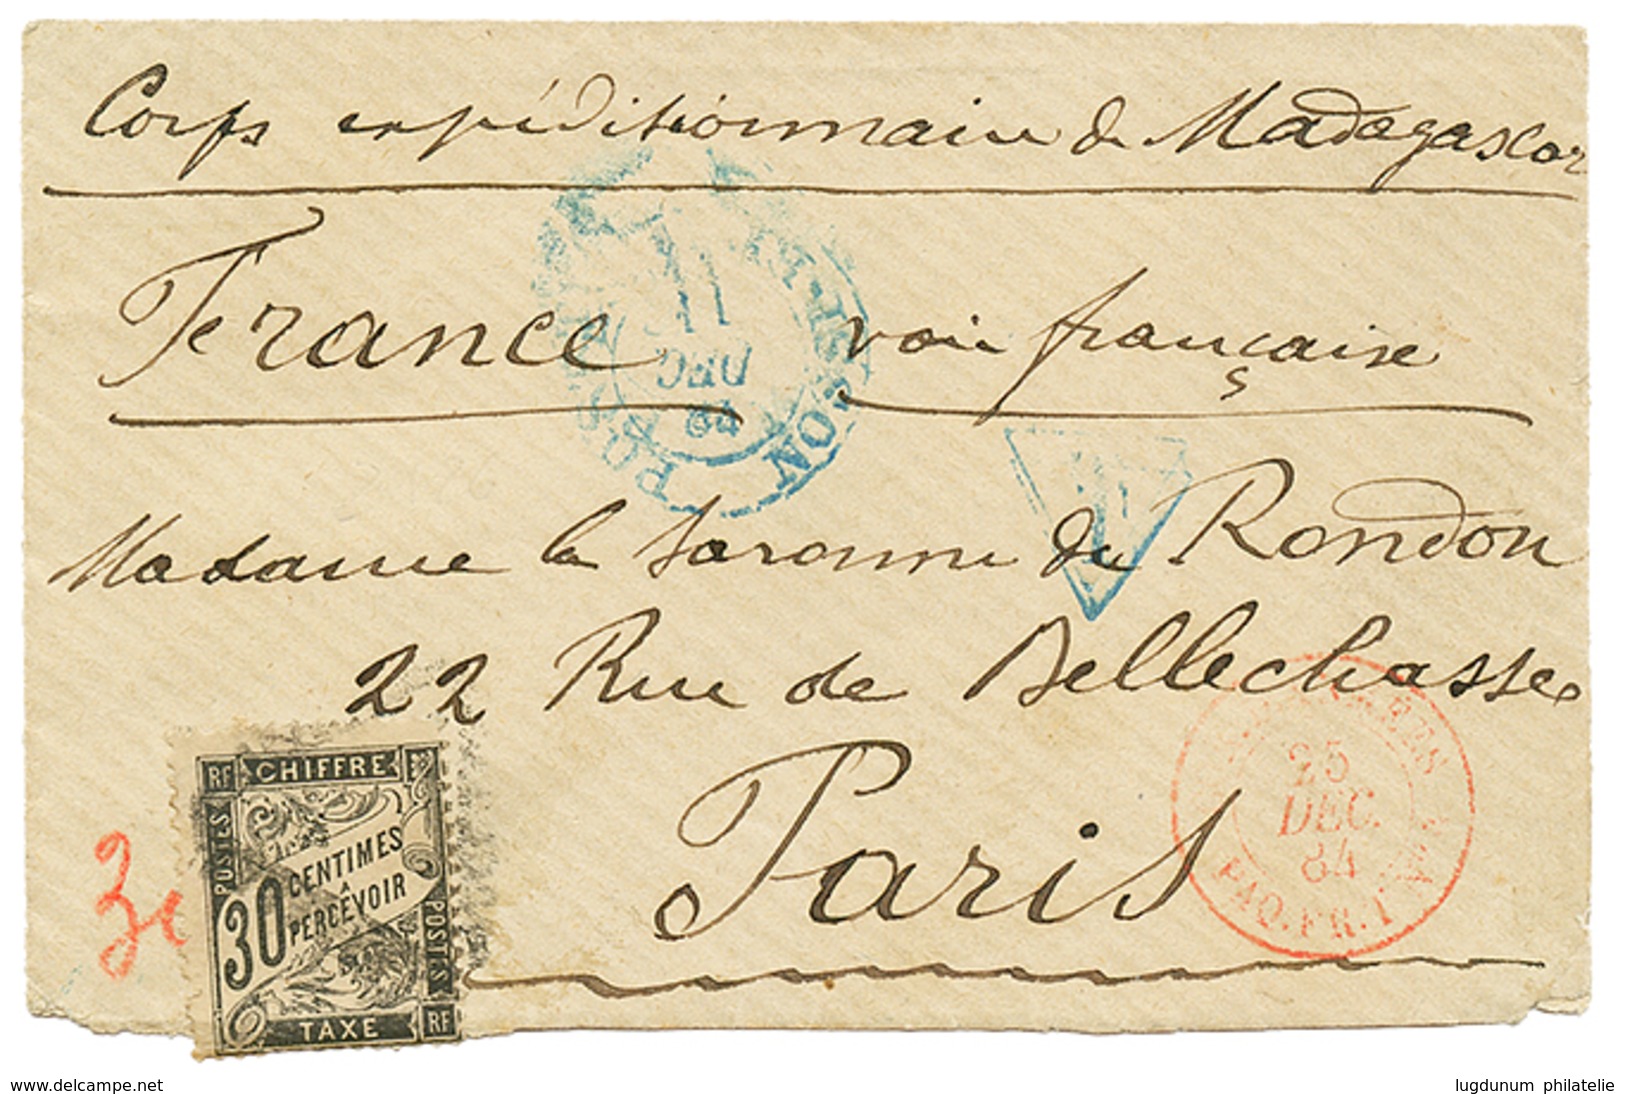 Corps expéditionnaire de Madagascar
France voie française
11
DEC
Madame la Baronne de Rondon
T
22 Rue de Bellechasse
Paris
25
DEC.
84
PAQ. FR.
RF CHIFFRE
POSTES
30 CENTIMES
A
PERCEVOIR
POSTES
TAXE RF
www.delcampe.net
lugdunum philatelie